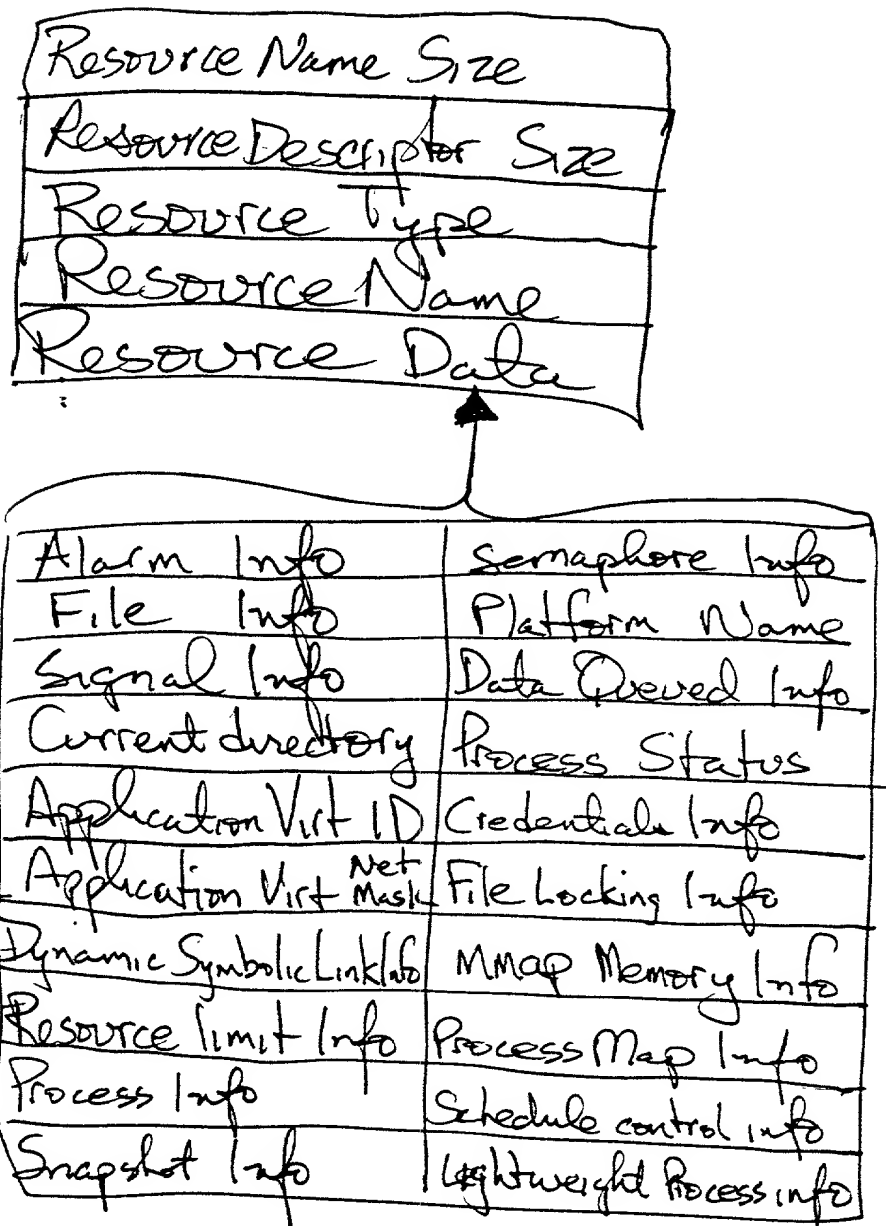 Resource Name Size
Resource Descriptor Size
Resource Type
Resource Name
Resource Data
Alarm Info
Semaphore Info
File Info
Platform Name
Signal Info
Data Queued Info
Current directory
Process Status
Application Virt ID
Credentials Info
Application Virt Net Mask
File Locking Info
Dynamic Symbolic Link Info
MMap Memory Info
Resource limit Info
Process Map Info
Process Info
Schedule control info
Snapshot Info
Lightweight Process info